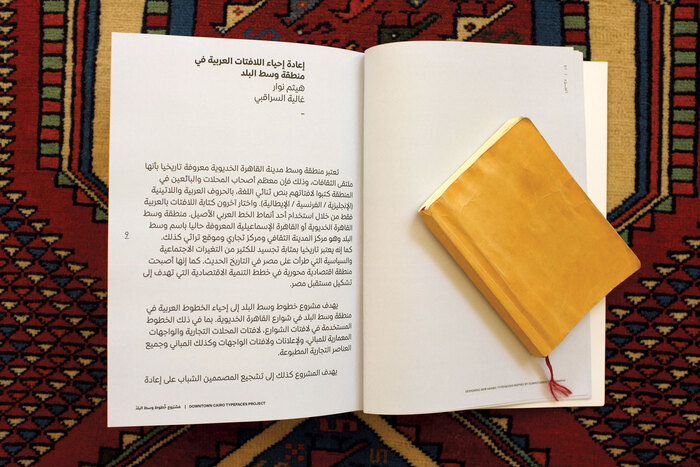 إعادة إحياء اللافتات العربية في
منطقة وسط البلد
هيثم نوار
غالية السراقبي
–
تعتبر منطقة وسط مدينة القاهرة الخديوية معروفة تاريخيا بأنها
ملتقى الثقافات، وذلك فإن معظم أصحاب المحلات والبائعين في
المنطقة كتبوا لافتاتهم بنص ثنائي اللغة، بالحروف العربية واللاتينية
(الإنجليزية / الفرنسية / الإيطالية). واختار آخرون كتابة اللافتات بالعربية
فقط من خلال استخدام أحد أنماط الخط العربي الأصيل. منطقة وسط
القاهرة الخديوية أو القاهرة الإسماعيلية المعروفة حاليا باسم وسط
البلد وهو مركز المدينة الثقافي ومركز تجاري وموقع تراثي كذلك.
كما إنه يعتبر تاريخيا بمثابة تجسيد للكثير من التغيرات الاجتماعية
والسياسية التي طرأت على مصر في التاريخ الحديث. كما إنها أصبحت
منطقة اقتصادية محورية في خطط التنمية الاقتصادية التي تهدف إلى
تشكيل مستقبل مصر.
يهدف مشروع خطوط وسط البلد إلى إحياء الخطوط العربية في
منطقة وسط البلد في شوارع القاهرة الخديوية. بما في ذلك الخطوط
المستخدمة في لافتات الشوارع، لافتات المحلات التجارية والواجهات
المعمارية للمباني، ولإعلانات ولافتات الواجهات وكذلك المباني وجميع
العناصر التجارية المطبوعة.
يهدف المشروع كذلك إلى تشجيع المصممين الشباب على إعادة
مشروع خطوط وسط البلد | DOWNTOWN CAIRO TYPEFACES PROJECT
DESIGNING NEW ARABIC TYPEFACES INSPIRED BY DOWNTOWN